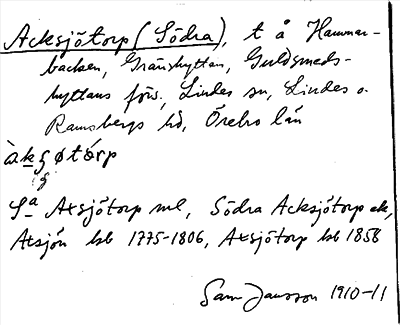 Acksjötorp (Södra), t å Hammar-
backen, Gränshyttan, Guldsmeds-
hyttans förs, Lindes sn, Lindes o.
Ramsbergs hd, Örebro län
àkʂøtórp
Sª Axsjötorp ml, Södra Acksjötorp ek,
Axsjön hb 1775-1806, Axsjötorp hb 1858
Sam Jansson 1910-11